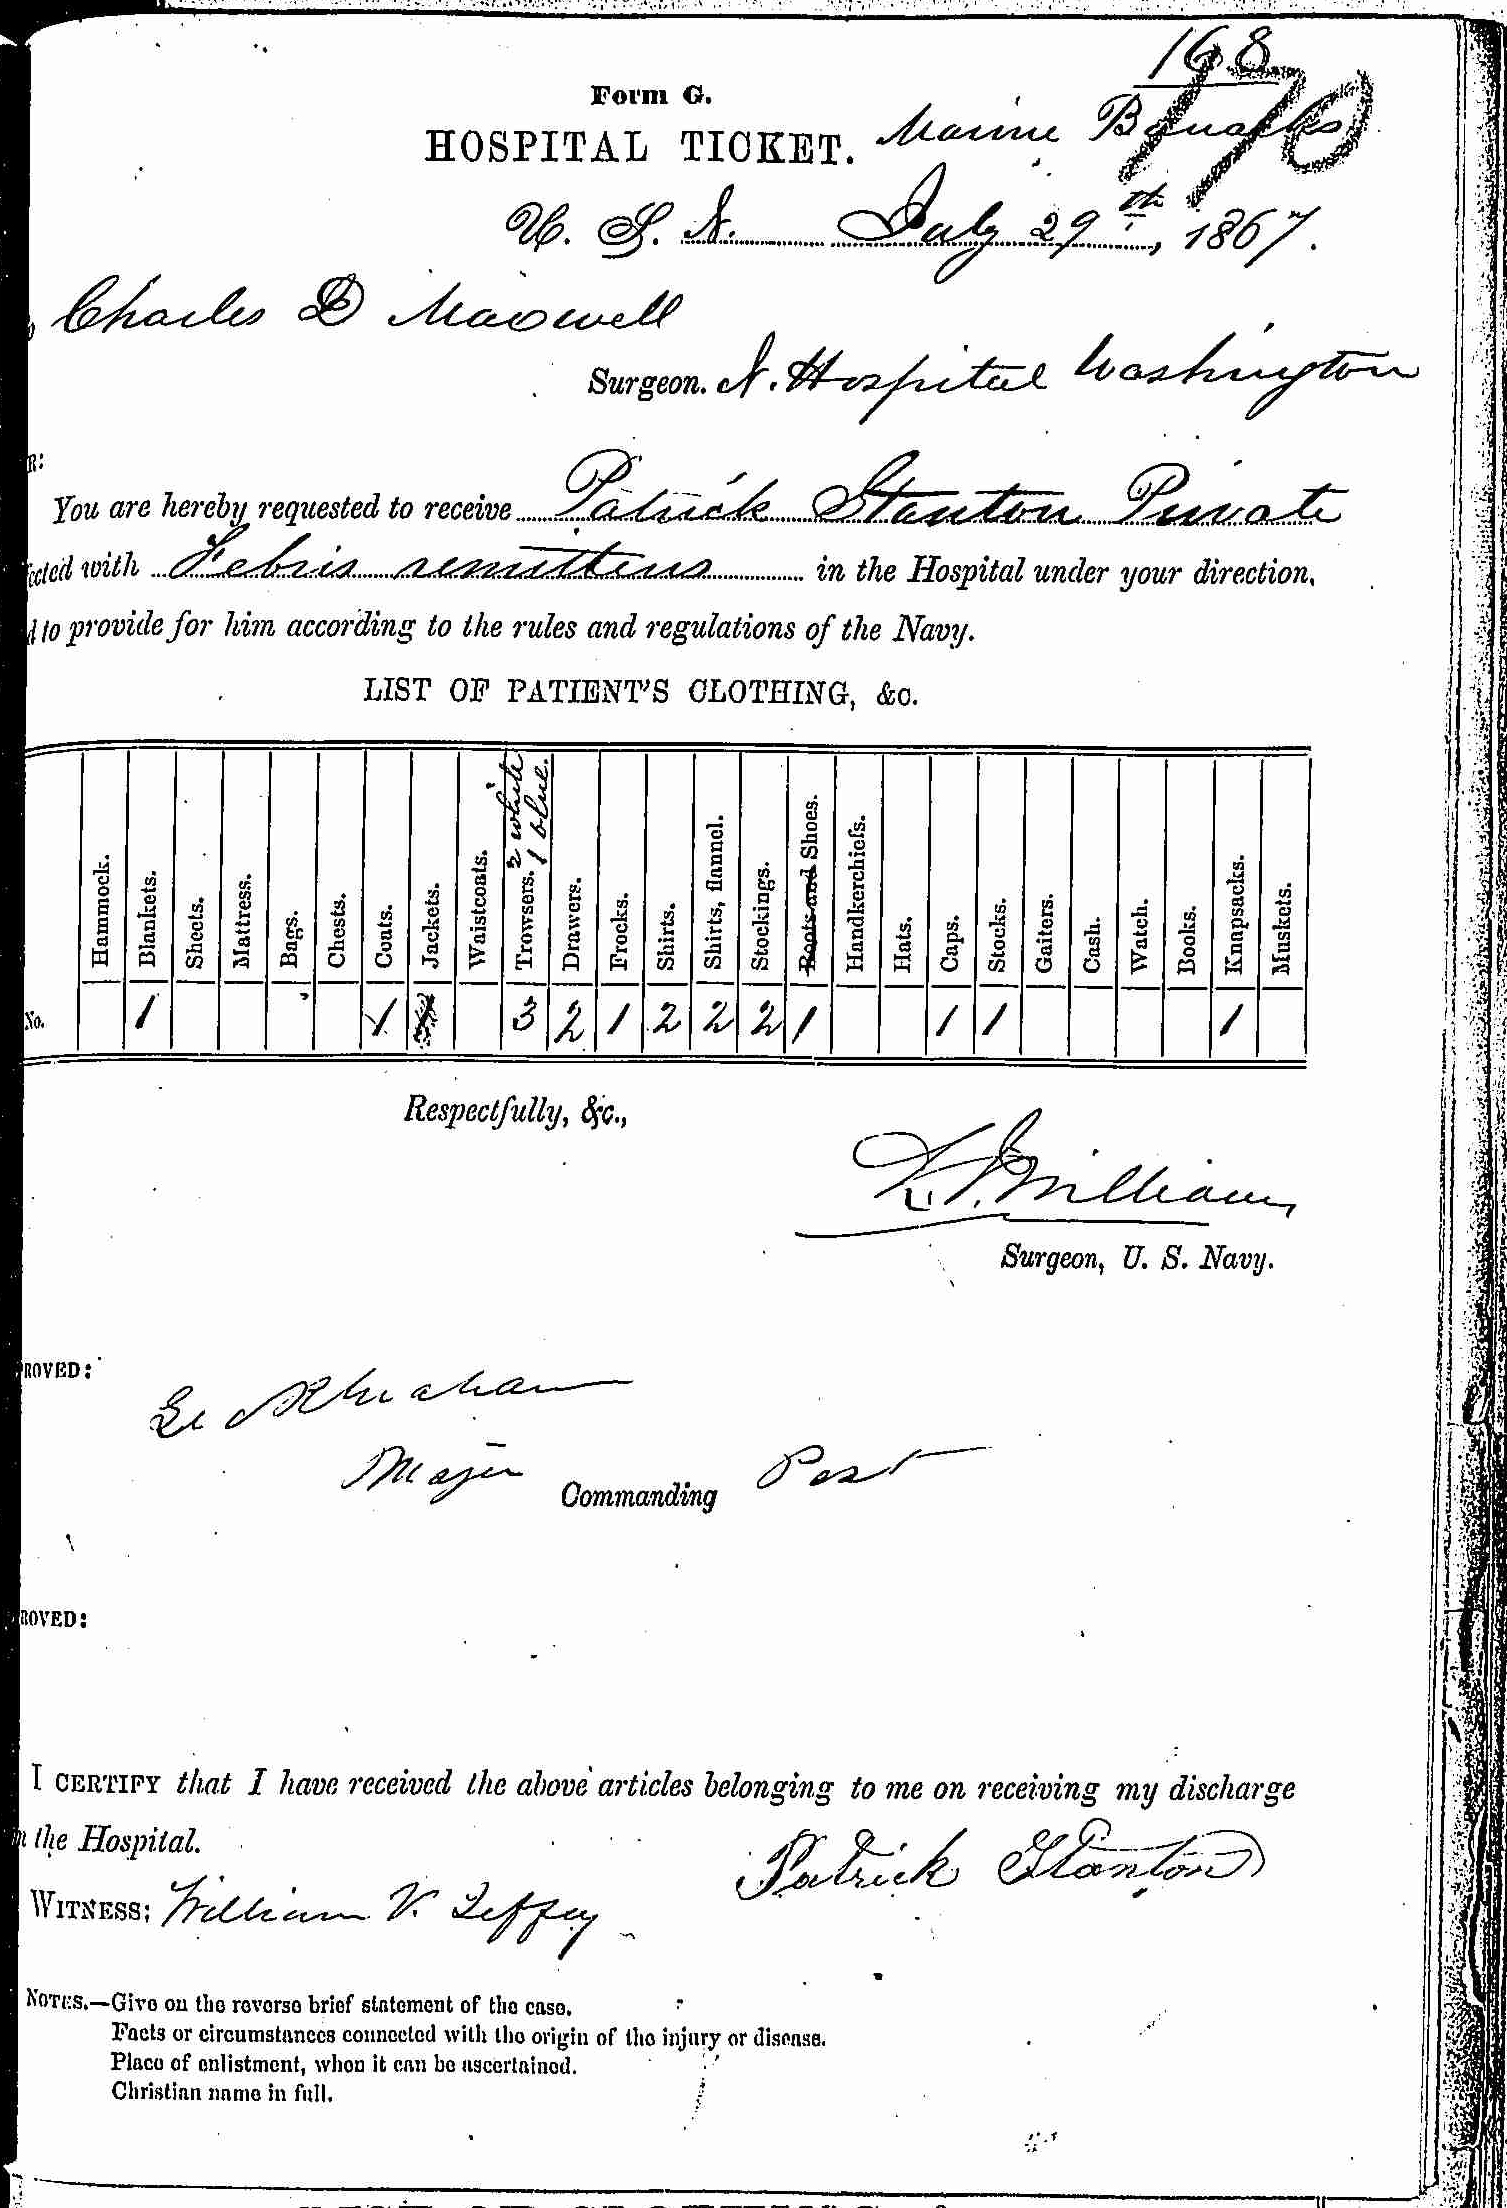 168
170
Form G.
HOSPITAL TICKET. Marine Barracks
U. S. N. July 29th, 1867.
Charles D Maxwell
Surgeon. N. Hospital Washington
R:
You are hereby requested to receive Patrick Stanton Private
ected with Febris remittens in the Hospital under your direction,
d to provide for him according to the rules and regulations of the Navy.
LIST OF PATIENT'S CLOTHING, &c.
Hammock. Blankets. Sheets. Mattress. Bags. Chests. Coats. Jackets. Waistcoats. Trowsers. 2 white 1 blue. Drawers. Frocks. Shirts. Shirts, flannel. Stockings. Boots and Shoes. Handkerchiefs. Hats. Caps. Stocks. Gaiters. Cash. Watch. Books. Knapsacks. Muskets.
No. 1 1 3 2 1 2 2 2 1 1 1 1
Respectfully, &c.,
Williams
Surgeon, U. S. Navy.
ROVED:
Major Commanding Post
ROVED:
I CERTIFY that I have received the above articles belonging to me on receiving my discharge
the Hospital.
Patrick Stanton
WITNESS: William V.
NOTES.—Give on the reverse brief statement of the case.
Facts or circumstances connected with the origin of the injury or disease.
Place of enlistment, when it can be ascertained.
Christian name in full.